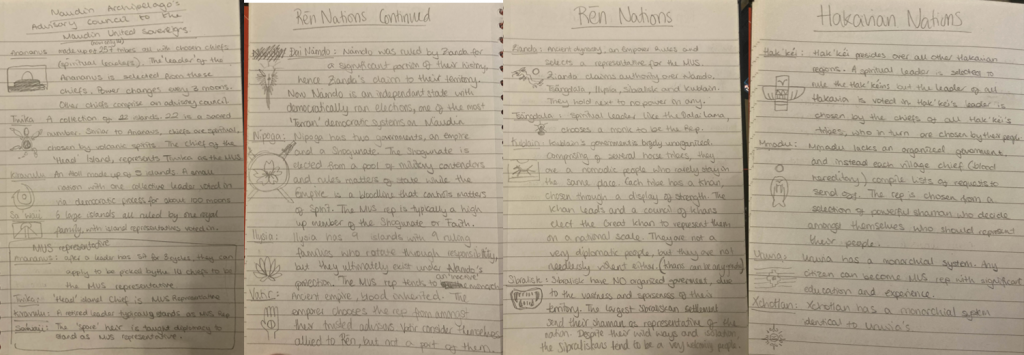 Naudin Archipelago's
Advisory Council to the
Naudin United Sovereigns
made up of 257 tribes all with chosen chiefs
(spiritual leaders). The leader of the
Ananarus is selected from these
chiefs. Power changes every moons.
Other chiefs comprise an advisory council.
A collection of 21 islands. 22 is a sacred
number. Similar to chiefs are spiritual,
chosen by volcanic spirits. The chief of the
"Head" Island, represents in the MUS
An atoll made up of islands. A small
nation with one collective leader voted in
via democratic process for about 100 moons
5 large islands all ruled by the royal
family with island representatives
MUS representative
after a leader has sat for they can
apply to be picked by the chiefs to be
the MUS representative
"Head" island Chief is MUS Representative
A voted leader typically stands as MUS Rep
The "spare" heir is taught diplomacy to
stand as MUS representative.
Rēn Nations Continued
Dai Namdo: Namdo was ruled by Zando for
a significant portion of their history,
hence Zando's claim to their territory.
Now Namdo is an independent state with
democratically ran elections, one of the most
"Terran" democratic systems on Naudin
Nipaga: Nipaga has two governments, an empire
and a Shogunate. The Shogunate is
elected from a pool of military contenders
and rules matters of state while the
Empire is a bloodline that controls matters
of Spirit. The MUS rep is typically a high
up member of the Shogunate or Faith.
Ilypia: Ilypia has 9 islands with 9 ruling
families who rotate through responsibility,
but they ultimately exist under Namdo's
protection. The MUS rep tends to
an inactive monarch
Ancient empire, blood inherited. The
emperor chooses the rep from amongst
their trusted advisors. consider themselves
allied to Rēn, but not a part of them.
Rēn Nations
Zando: Ancient dynasty, an Emperor Rules and
selects a representative for the MUS.
Zianta claims authority over Namdo,
Tsangdala, Ilypia, Sibralsk and
They hold next to no power in any.
Tsangdala: spiritual leader like the Dalai Lama,
chooses a monk to be the Rep.
government is largely unorganized.
Comprising of several horse tribes, they
are a nomadic people who rarely stay in
the same place. Each tribe has a Khan,
chosen through a display of strength. The
Khan leads and a council of khans
elect the Great Khan to represent them
on a national scale. They are not a
very diplomatic people, but they are not
needlessly violent either. (Khans can be any gender)
Sibralsk: Sibralsk have NO organised government, due
to the vastness and sparseness of their
territory. The largest Sibralskan settlement
send their shaman as representative of the
nation. Despite their wild ways and isolation
the Sibralskans tend to be a very people.
Hakavian Nations
Hak'kei: Hak'kei presides over all other Hakavian
regions. A spiritual leader is selected to
rule the Hak'kei but the leader of all
Hakavia is voted in. Hak'kei's leader is
chosen by the chiefs of all Hak'kei's
tribes, who in turn are chosen by their people.
Mnadu: Mnadu lacks an organised government
and instead each village chief (blood
hereditary) compile lists of requests to
send off. The rep is chosen from a
selection of powerful shaman who decide
among themselves who should represent
their people.
Unwia: Unwia has a monarchial system. Any
citizen can become MUS rep with significant
education and experience.
Xchotlan: Xchotlan has a monarchial system
identical to Unwia's.